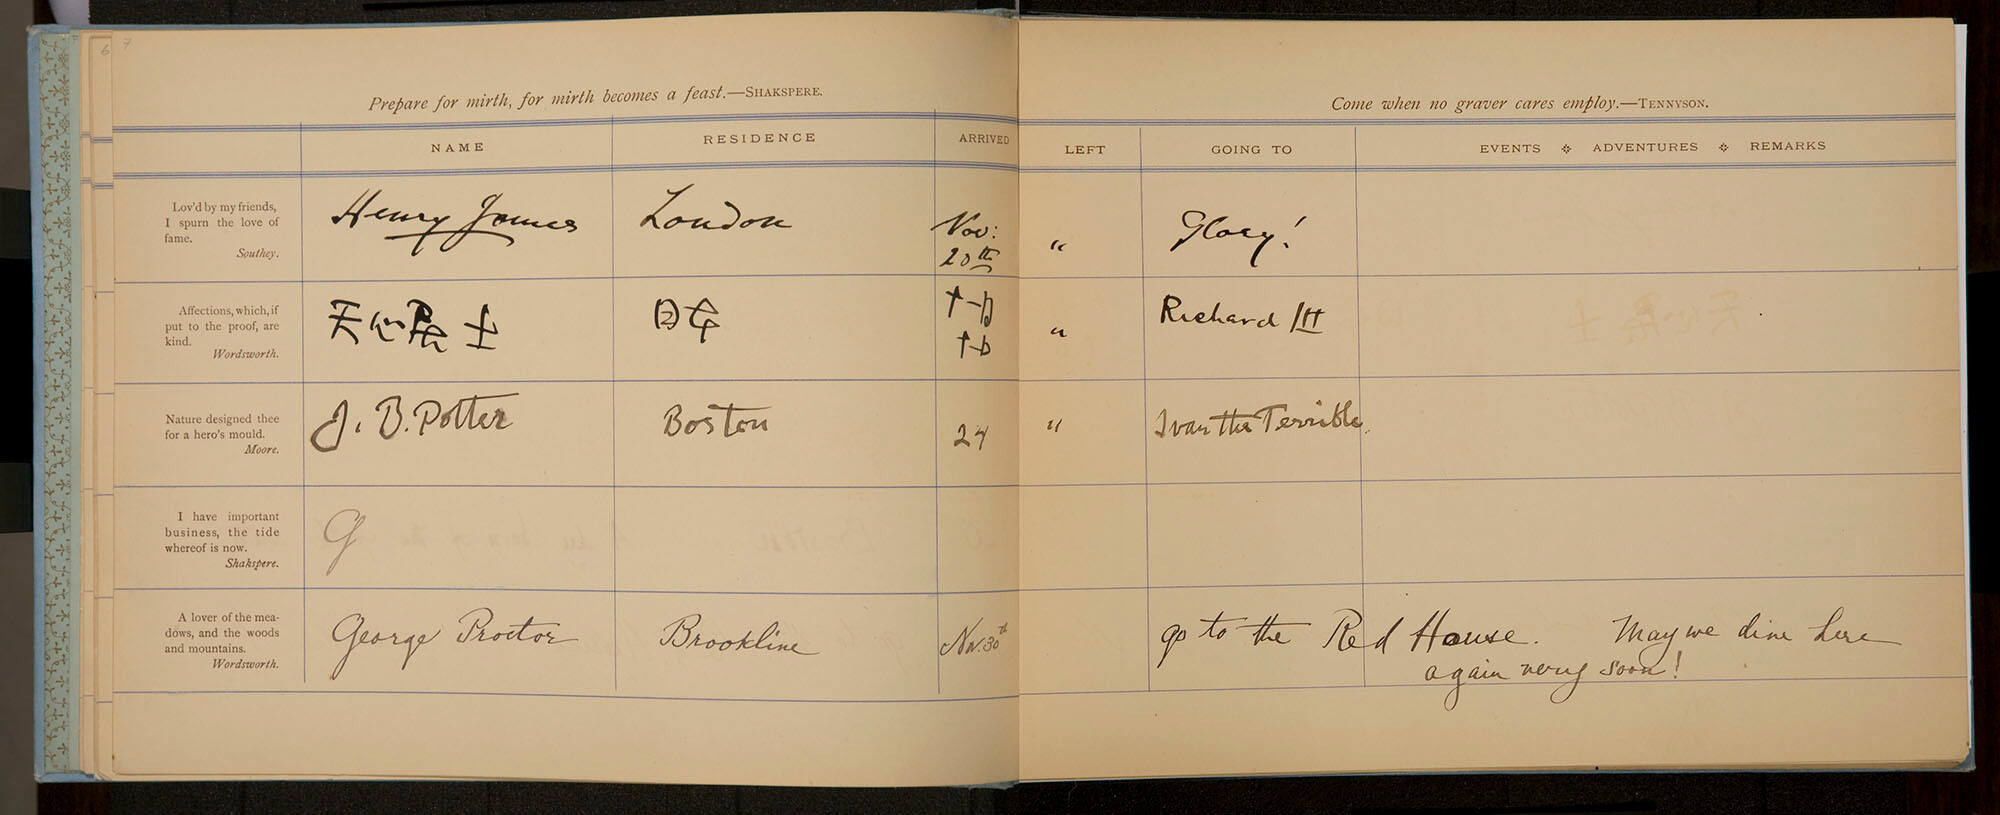 6
7
Prepare for mirth, for mirth becomes a feast.—SHAKSPERE.
NAME
RESIDENCE
ARRIVED
Lov'd by my friends,
I spurn the love of
fame.
Southey.
Henry James
London
Nov:
20th
Affections, which, if
put to the proof, are
kind.
Wordsworth.
Nature designed thee
for a hero's mould.
Moore.
J. B. Potter
Boston
24
I have important
business, the tide
whereof is now.
Shakspere.
G
A lover of the mea-
dows, and the woods
and mountains.
Wordsworth.
George Proctor
Brookline
Nov. 30th
Come when no graver cares employ.—TENNYSON.
LEFT
GOING TO
EVENTS ADVENTURES REMARKS
"
Glory!
"
Richard III
"
Ivan the Terrible.
go to the Red House. May we dine here
again very soon!